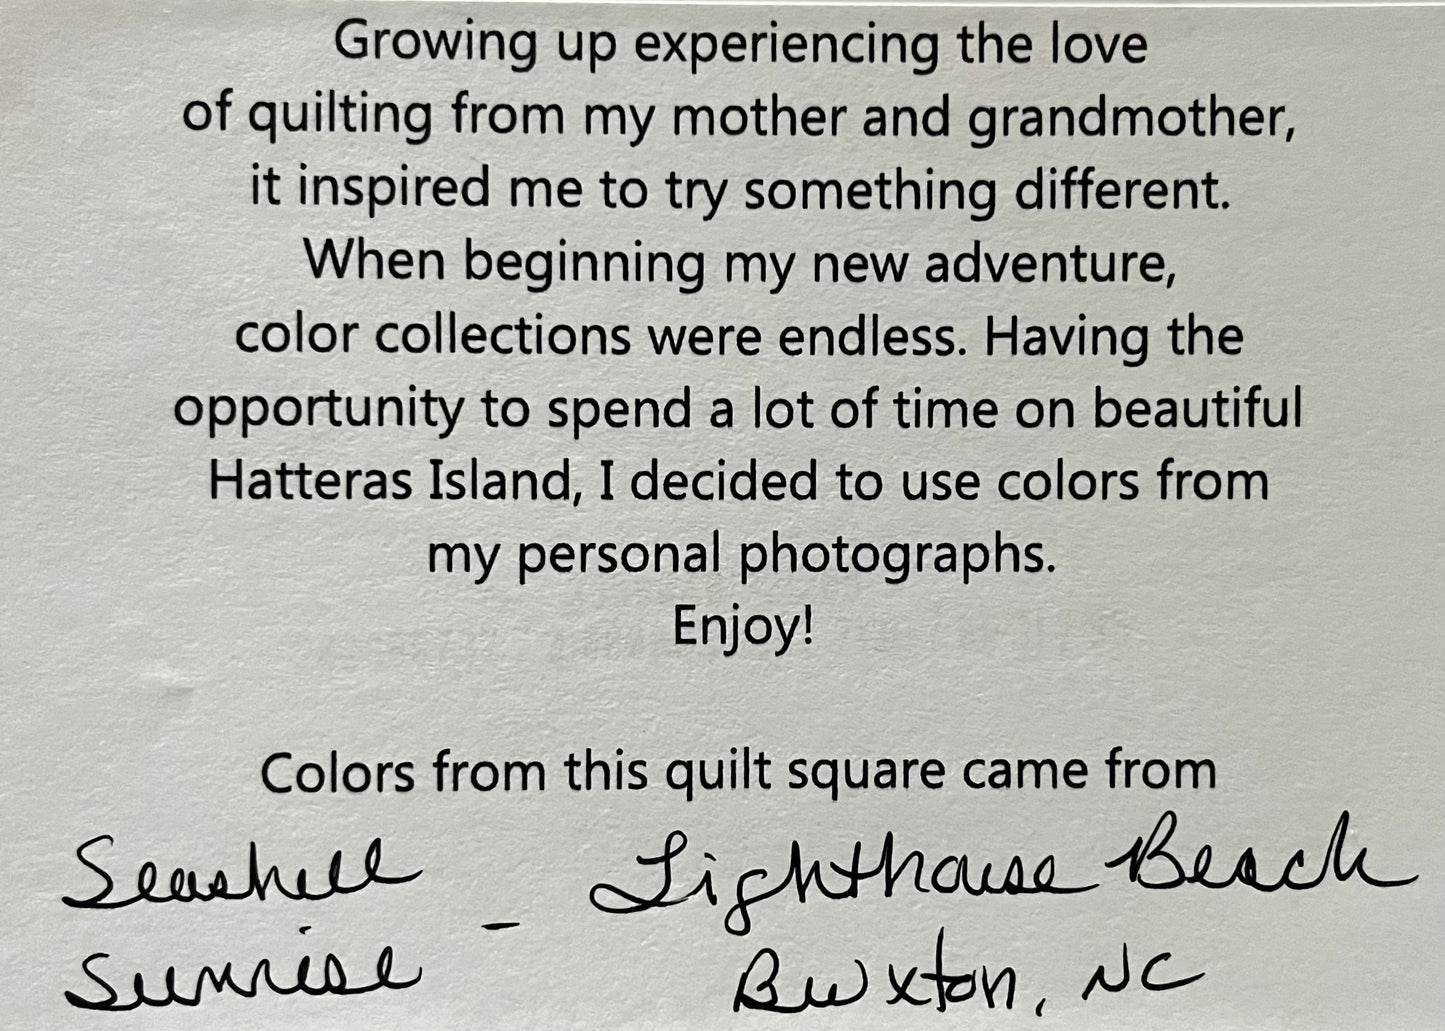 Growing up experiencing the love
of quilting from my mother and grandmother,
it inspired me to try something different.
When beginning my new adventure,
color collections were endless. Having the
opportunity to spend a lot of time on beautiful
Hatteras Island, I decided to use colors from
my personal photographs.
Enjoy!
Colors from this quilt square came from
Seashell
Sunrise - Lighthouse Beach
Buxton, NC